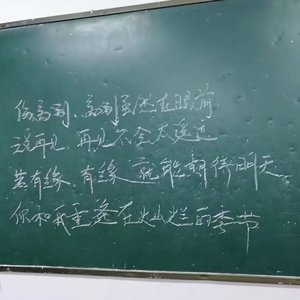 伤离别、离别虽然在眼前
说再见、再见不会太遥远
若有缘、有缘就能期待明天、
你和我重逢在灿烂的季节